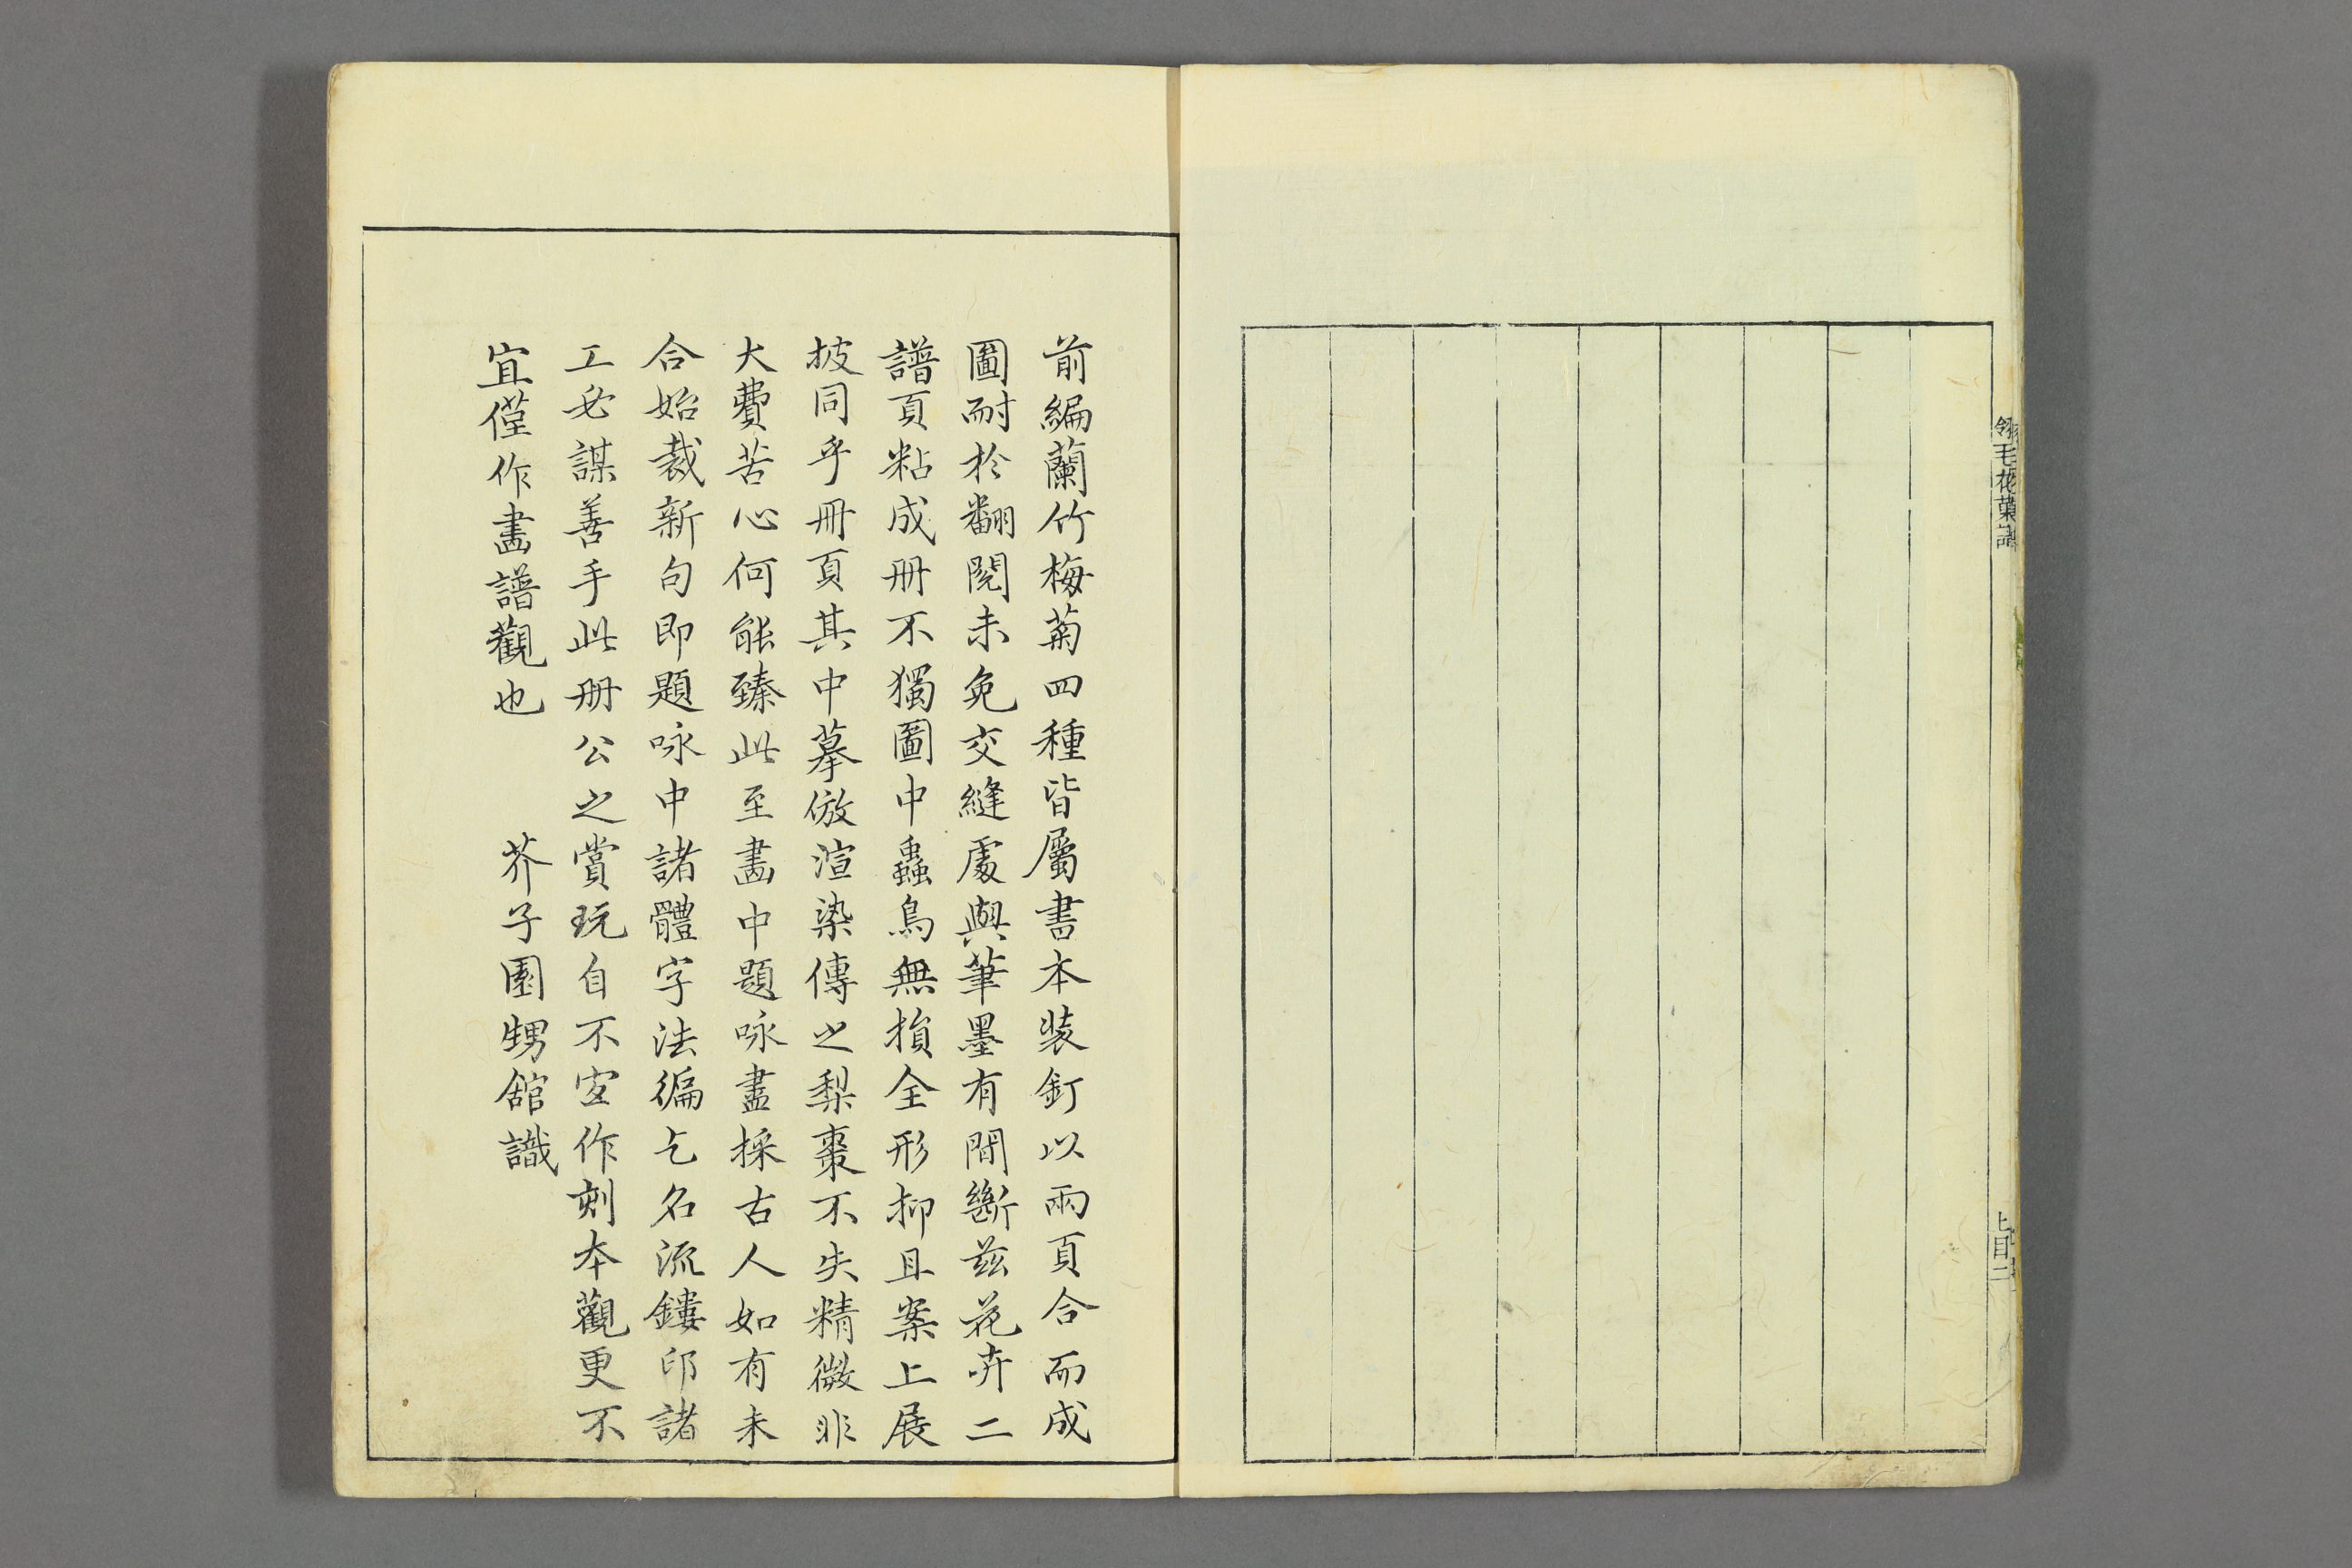 翎毛花菓譜
上目二
前編蘭竹梅菊四種皆屬書本装釘以兩頁合而成
圖耐於翻閱未免交縫處與筆墨有間斷兹花卉二
譜頁粘成册不獨圖中蟲鳥無損全形抑且案上展
披同乎冊頁其中摹倣渲染傳之梨棗不失精微非
大費苦心何能臻此至畵中題咏盡採古人如有未
合始裁新句即題咏中諸體字法徧乞名流鏤印諸
工必謀善手此册公之賞玩自不宜作刻本觀更不
宜僅作畵譜觀也
芥子園甥舘識